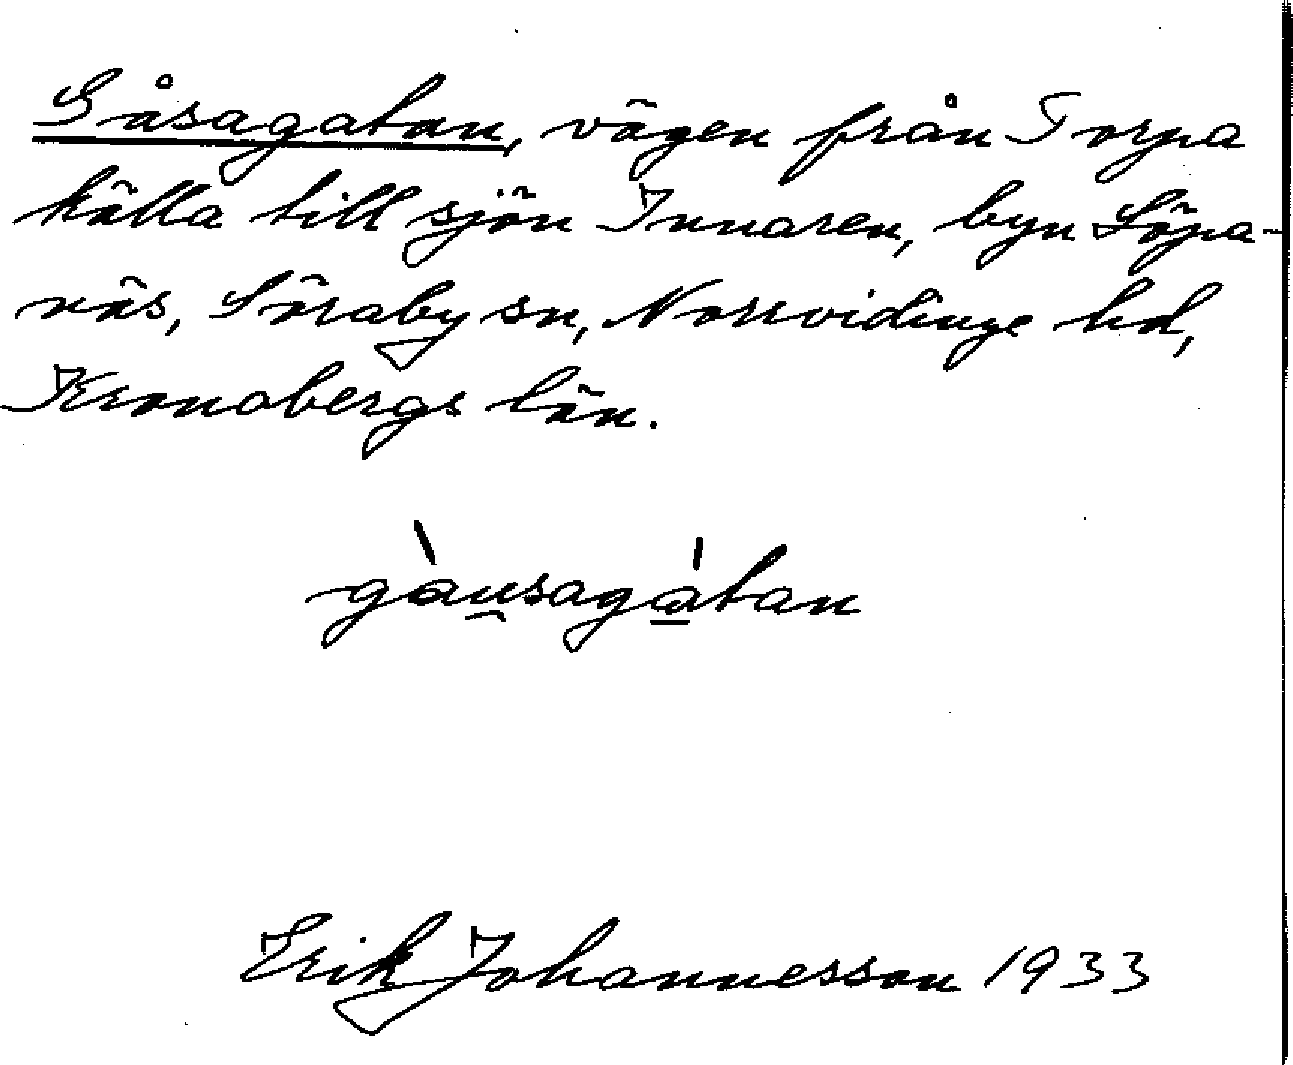 Gåsagatan, vägen från Torpa
källa till sjön Innaren, byn Löpa-
näs, Söraby sn, Norrvidinge hd,
Kronobergs län.
gàu̯saga̲̍tan
Erik Johannesson 1933